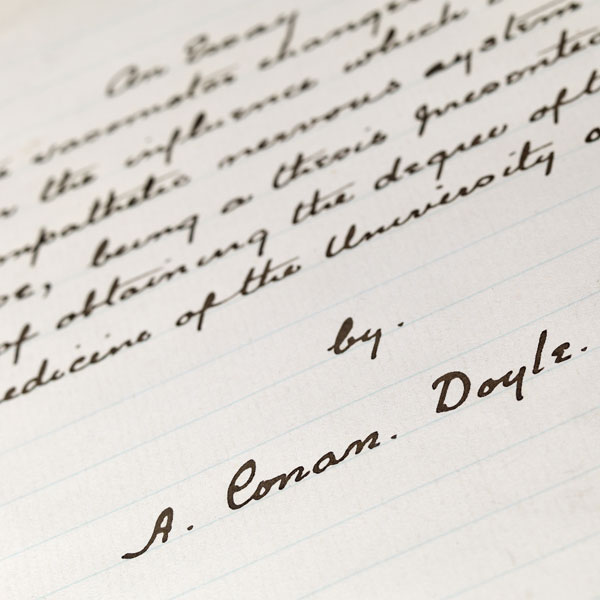 An Essay
vasomotor changes
the influence which
sympathetic nervous system
being a thesis presented
of obtaining the degree of
medicine of the University
by.
A. Conan. Doyle.